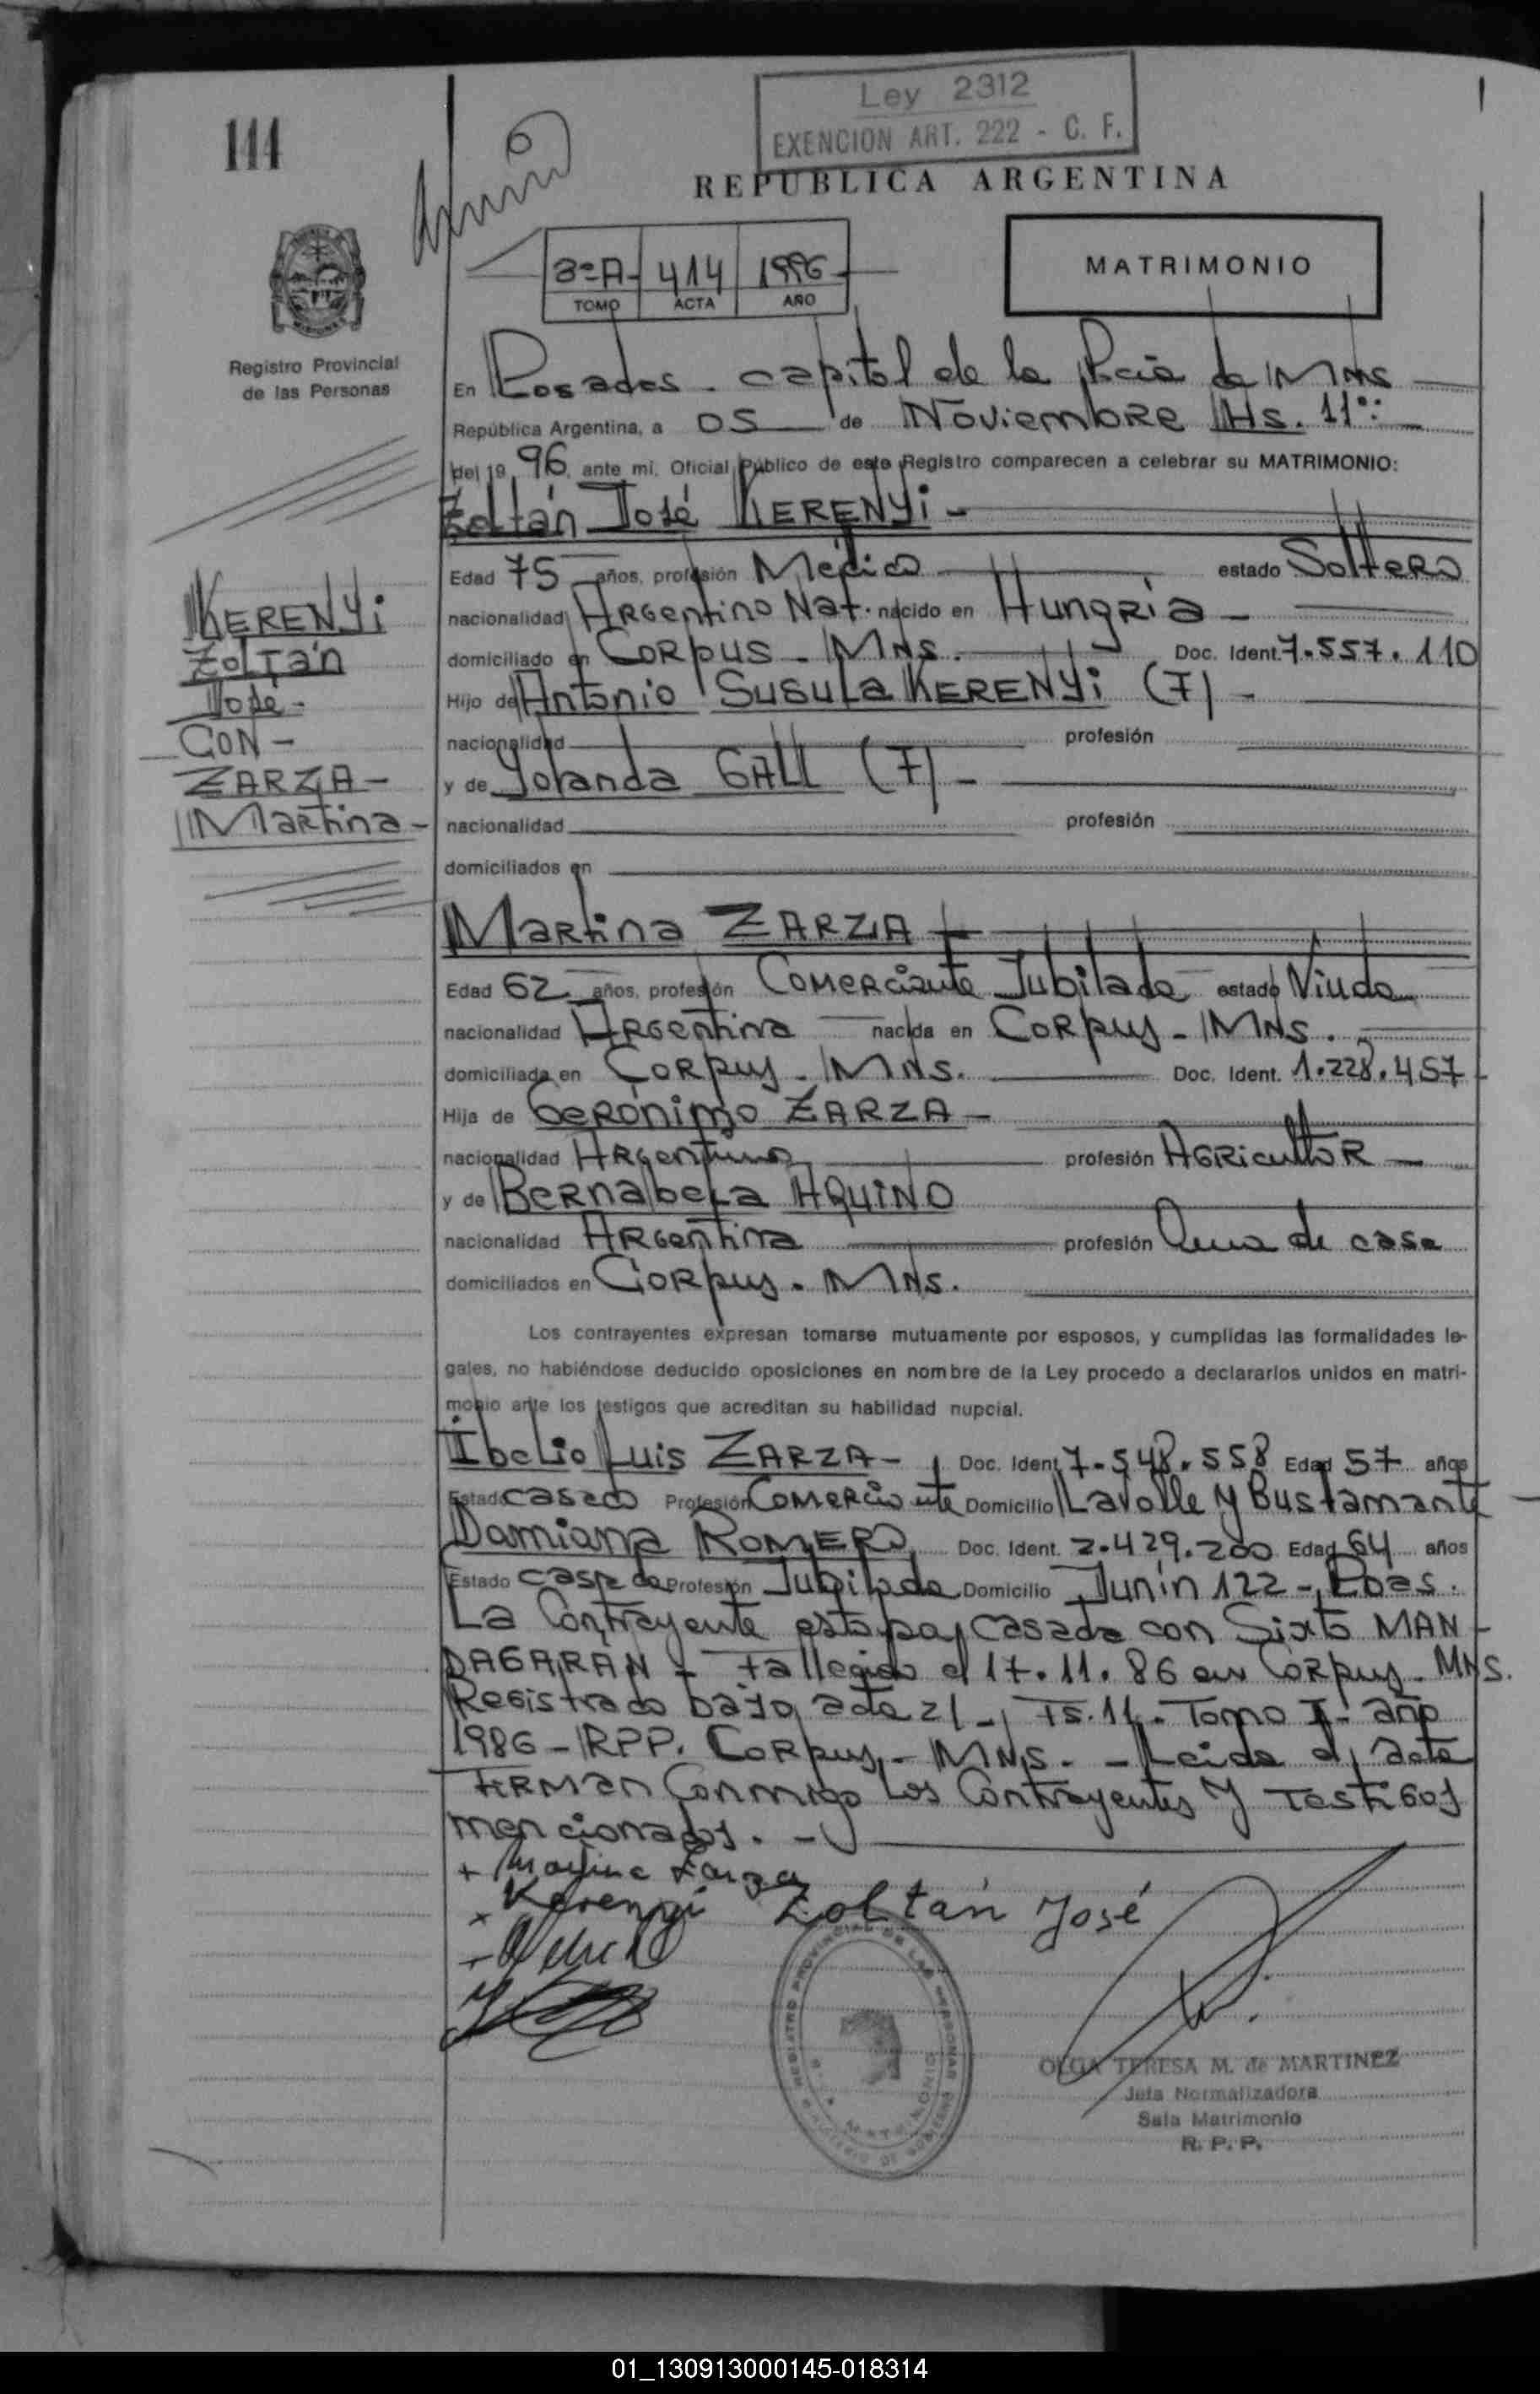 Ley 2312
EXENCION ART. 222 - C. F.
111
REPUBLICA ARGENTINA
3ºA- 414 1996
TOMO ACTA AÑO
MATRIMONIO
Registro Provincial
de las Personas
En Posadas. capital de la Pcia de Mns
República Argentina, a 05 de Noviembre Hs. 11:
del 19 96 ante mi, Oficial Público de este Registro comparecen a celebrar su MATRIMONIO:
Zoltán José KERENYi -
Edad 75 años, profesión Médico estado Soltero
nacionalidad Argentino Nat. nacido en Hungria -
domiciliado en Corpus - Mns. Doc. Ident. 7.557.110
Hijo de Antonio Susula KERENYi (7) -
nacionalidad profesión
y de Yolanda GALL (7) -
nacionalidad profesión
domiciliados en
KERENYi
Zoltán
José -
CON -
ZARZA -
Martina -
Martina ZARZA
Edad 62 años, profesión Comerciante Jubilada estado Viuda
nacionalidad Argentina nacida en Corpus - Mns.
domiciliada en Corpus - Mns. Doc. Ident. 1.228.457
Hija de Gerónimo ZARZA -
nacionalidad Argentino profesión Agricultor -
y de Bernabela AQUINO
nacionalidad Argentina profesión Ama de casa
domiciliados en Corpus - Mns.
Los contrayentes expresan tomarse mutuamente por esposos, y cumplidas las formalidades le-
gales, no habiéndose deducido oposiciones en nombre de la Ley procedo a declararlos unidos en matri-
monio ante los testigos que acreditan su habilidad nupcial.
Ibelio Luis ZARZA - Doc. Ident. 7.548.558 Edad 57 años
Estado casado Profesión Comerciante Domicilio Lavalle y Bustamante -
Damiana ROMERO Doc. Ident. 2.429.200 Edad 64 años
Estado casada Profesión Jubilada Domicilio Junín 122 - Pdas.
La Contrayente estaba casada con Sixto MAN-
DAGARAN - Fallecido el 17.11.86 en Corpus - Mns.
Registrado bajo acta 21 - Fs. 11 - Tomo I - año
1986 - RPP. Corpus - Mns. - Leida el acta
FIRMAN Conmigo Los Contrayentes y Testigos
mencionados. -
+ Martina Zarza
x Kerenyi Zoltán José
REGISTRO PROVINCIAL DE LAS PERSONAS
MATRIMONIO
OLGA TERESA M. de MARTINEZ
Jefa Normalizadora
Sala Matrimonio
R. P. P.
01_130913000145-018314